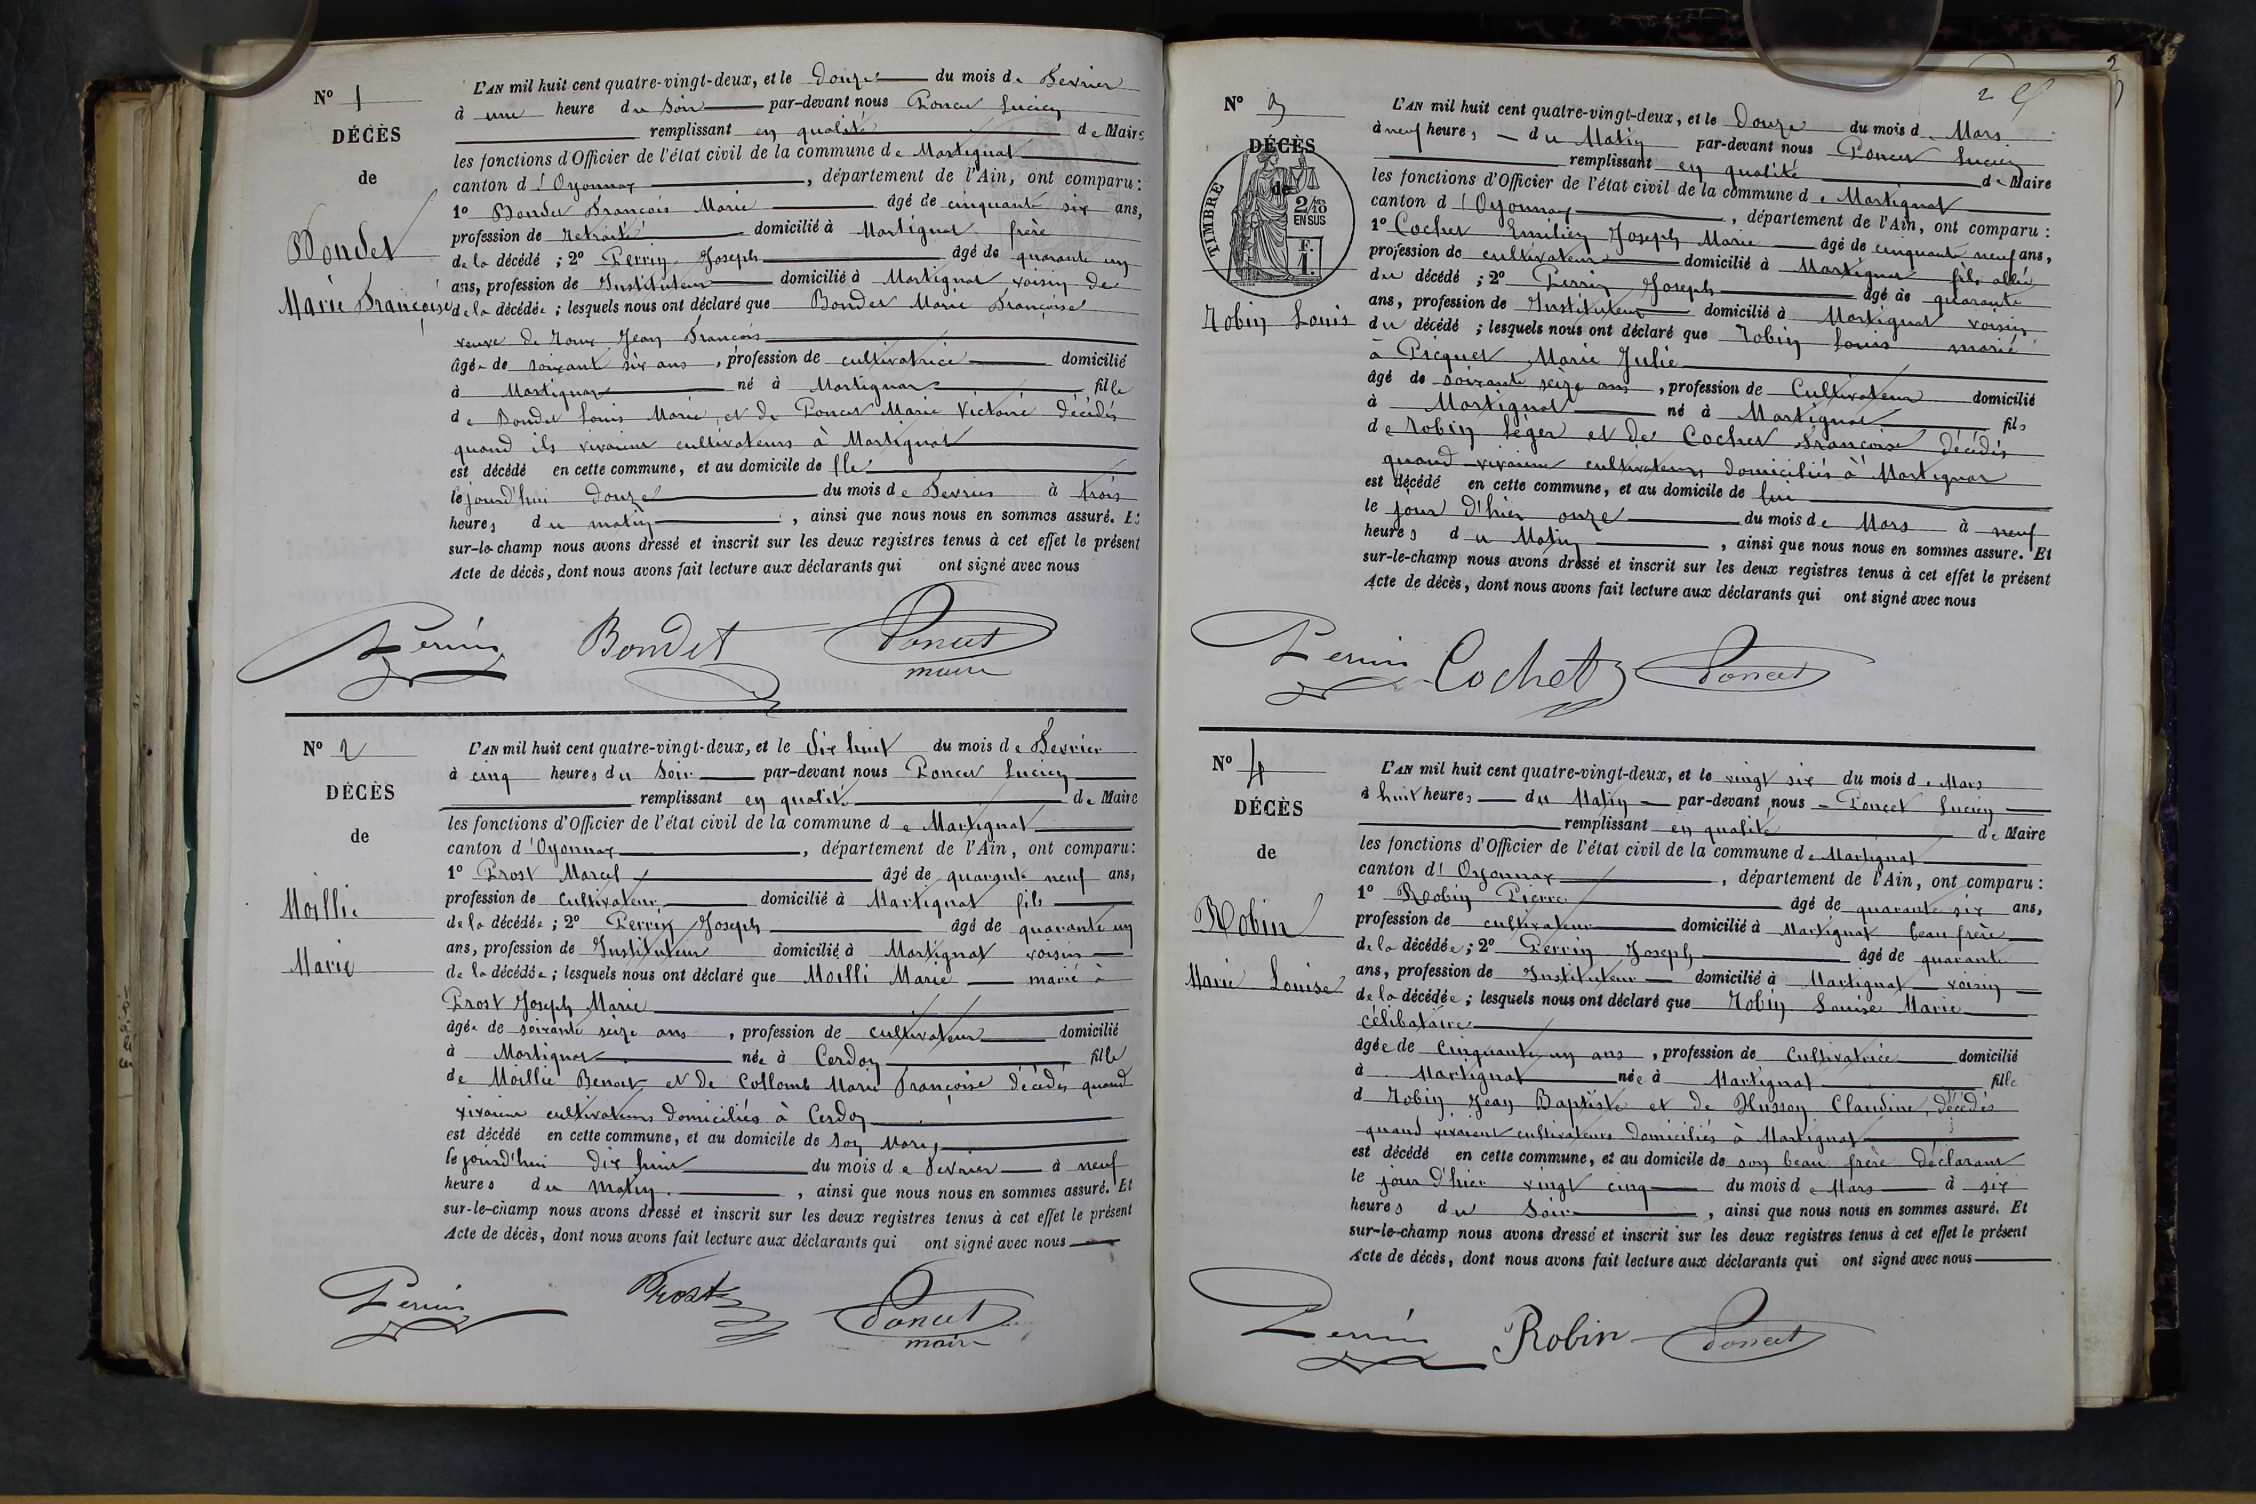 N° 1
DÉCÈS
de
Bondet
Marie Françoise
L'AN mil huit cent quatre-vingt-deux, et le douze du mois de Fevrier
à une heure du Soir par-devant nous Poncet Lucien
remplissant en qualité de Maire
les fonctions d'Officier de l'état civil de la commune de Martignat
canton d'Oyonnax, département de l'Ain, ont comparu :
1° Bondet François Marie âgé de cinquante six ans,
profession de Retraité domicilié à Martignat frère
de la décédé ; 2° Perrin Joseph âgé de quarante un
ans, profession de Instituteur domicilié à Martignat voisin de
de la décédée ; lesquels nous ont déclaré que Bondet Marie Françoise
veuve de Roux Jean François
âgée de soixant six ans, profession de cultivatrice domicilié
à Martignat né à Martignat fille
de Bondet Louis Marie et de Poncet Marie Victoire décédés
quand ils vivaient cultivateurs à Martignat
est décédé en cette commune, et au domicile de elle
le jourd'hui douze du mois de Fevrier à trois
heures du matin, ainsi que nous nous en sommes assuré. Et
sur-le-champ nous avons dressé et inscrit sur les deux registres tenus à cet effet le présent
Acte de décès, dont nous avons fait lecture aux déclarants qui ont signé avec nous
Perrin Bondet Poncet
maire
N° 2
DÉCÈS
de
Moillie
Marie
L'AN mil huit cent quatre-vingt-deux, et le dix huit du mois de Fevrier
à cinq heures du Soir par-devant nous Poncet Lucien
remplissant en qualité de Maire
les fonctions d'Officier de l'état civil de la commune de Martignat
canton d'Oyonnax, département de l'Ain, ont comparu :
1° Prost Marcel âgé de quarante neuf ans,
profession de cultivateur domicilié à Martignat fils
de la décédée ; 2° Perrin Joseph âgé de quarante un
ans, profession de Instituteur domicilié à Martignat voisin
de la décédée ; lesquels nous ont déclaré que Moilli Marie marié à
Prost Joseph Marie
âgée de soixante seize ans, profession de cultivateur domicilié
à Martignat née à Cerdon fille
de Moillie Benoit et de Collomb Marie Françoise décédés quand
vivaient cultivateurs domiciliés à Cerdon
est décédé en cette commune, et au domicile de son Mari
le jourd'hui dix huit du mois de Fevrier à neuf
heures du Matin, ainsi que nous nous en sommes assuré. Et
sur-le-champ nous avons dressé et inscrit sur les deux registres tenus à cet effet le présent
Acte de décès, dont nous avons fait lecture aux déclarants qui ont signé avec nous
Perrin Prost Poncet
maire
2
N° 3
DÉCÈS
de
TIMBRE
2/10
EN SUS
F.
1.
Robin Louis
L'AN mil huit cent quatre-vingt-deux, et le Douze du mois d Mars
à neuf heures du Matin par-devant nous Poncet Lucien
remplissant en qualité de Maire
les fonctions d'Officier de l'état civil de la commune de Martignat
canton d'Oyonnax, département de l'Ain, ont comparu :
1° Cochet Emilien Joseph Marie âgé de cinquante neuf ans,
profession de cultivateur domicilié à Martignat fils allié
du décédé ; 2° Perrin Joseph âgé de quarante
ans, profession de Instituteur domicilié à Martignat voisin
du décédé ; lesquels nous ont déclaré que Robin Louis marié
à Picquet Marie Julie
âgé de soixante seize ans, profession de Cultivateur domicilié
à Martignat né à Martignat fils
de Robin Léger et de Cochet Françoise décédés
quand vivaient cultivateurs domiciliés à Martignat
est décédé en cette commune, et au domicile de lui
le jour d'hier onze du mois de Mars à neuf
heures du Matin, ainsi que nous nous en sommes assuré. Et
sur-le-champ nous avons dressé et inscrit sur les deux registres tenus à cet effet le présent
Acte de décès, dont nous avons fait lecture aux déclarants qui ont signé avec nous
Perrin Cochet Poncet
N° 4
DÉCÈS
de
Robin
Marie Louise
L'AN mil huit cent quatre-vingt-deux, et le vingt six du mois de Mars
à huit heures du Matin par-devant nous Poncet Lucien
remplissant en qualité de Maire
les fonctions d'Officier de l'état civil de la commune de Martignat
canton d'Oyonnax, département de l'Ain, ont comparu :
1° Robin Pierre âgé de quarante six ans,
profession de cultivateur domicilié à Martignat beau frère
de la décédée ; 2° Perrin Joseph âgé de quarante
ans, profession de Instituteur domicilié à Martignat voisin
de la décédée ; lesquels nous ont déclaré que Robin Louise Marie
célibataire
âgée de Cinquante un ans, profession de Cultivatrice domicilié
à Martignat née à Martignat fille
d Robin Jean Baptiste et de Husson Claudine, décédés
quand vivaient cultivateurs domiciliés à Martignat
est décédé en cette commune, et au domicile de son beau frère déclarant
le jour d'hier vingt cinq du mois de Mars à six
heures du Soir, ainsi que nous nous en sommes assuré. Et
sur-le-champ nous avons dressé et inscrit sur les deux registres tenus à cet effet le présent
Acte de décès, dont nous avons fait lecture aux déclarants qui ont signé avec nous
Perrin Robin Poncet